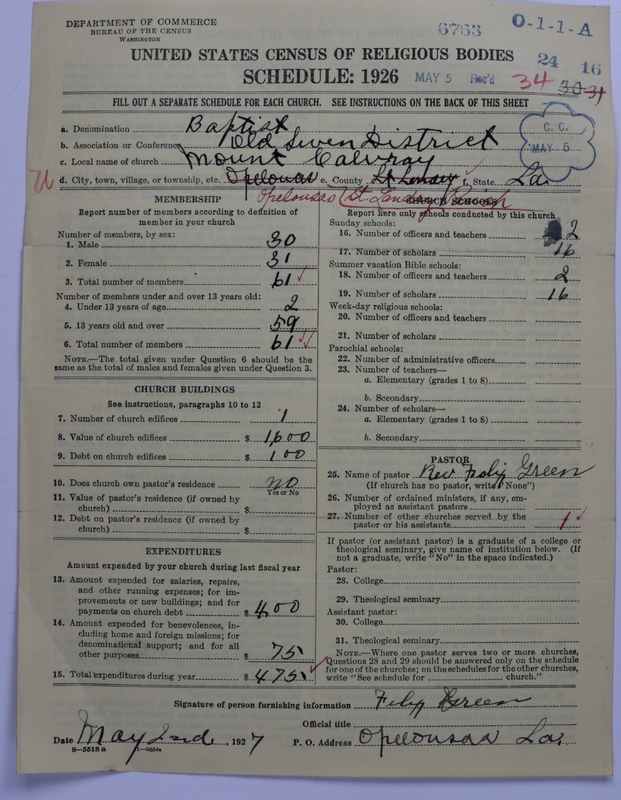 DEPARTMENT OF COMMERCE
BUREAU OF THE CENSUS
WASHINGTON
6763
O-1-1-A
UNITED STATES CENSUS OF RELIGIOUS BODIES
24 16
SCHEDULE: 1926
MAY 5 Rec'd
34 30-31
FILL OUT A SEPARATE SCHEDULE FOR EACH CHURCH. SEE INSTRUCTIONS ON THE BACK OF THIS SHEET
C. C.
MAY 5
a. Denomination Baptist
b. Association or Conference Old Seven District
c. Local name of church Mount Calvroy
d. City, town, village, or township, etc. Opelousas e. County St Landry f. State La.
Opelousas (St. Landry Parish
MEMBERSHIP
Report number of members according to definition of
member in your church
Number of members, by sex:
1. Male 30
2. Female 31
3. Total number of members 61
Number of members under and over 13 years old:
4. Under 13 years of age 2
5. 13 years old and over 59
6. Total number of members 61
NOTE.—The total given under Question 6 should be the
same as the total of males and females given under Question 3.
CHURCH BUILDINGS
See instructions, paragraphs 10 to 12
7. Number of church edifices 1
8. Value of church edifices $ 1,600
9. Debt on church edifices $ 100
10. Does church own pastor's residence no
Yes or No
11. Value of pastor's residence (if owned by
church) $
12. Debt on pastor's residence (if owned by
church) $
EXPENDITURES
Amount expended by your church during last fiscal year
13. Amount expended for salaries, repairs,
and other running expenses; for im-
provements or new buildings; and for
payments on church debt $ 400
14. Amount expended for benevolences, in-
cluding home and foreign missions; for
denominational support; and for all
other purposes $ 75
15. Total expenditures during year $ 475
CHURCH SCHOOLS
Report here only schools conducted by this church
Sunday schools:
16. Number of officers and teachers 2
17. Number of scholars 16
Summer vacation Bible schools:
18. Number of officers and teachers 2
19. Number of scholars 16
Week-day religious schools:
20. Number of officers and teachers
21. Number of scholars
Parochial schools:
22. Number of administrative officers
23. Number of teachers—
a. Elementary (grades 1 to 8)
b. Secondary
24. Number of scholars—
a. Elementary (grades 1 to 8)
b. Secondary
PASTOR
25. Name of pastor Rev Green
(If church has no pastor, write "None")
26. Number of ordained ministers, if any, em-
ployed as assistant pastors
27. Number of other churches served by the
pastor or his assistants 1
If pastor (or assistant pastor) is a graduate of a college or
theological seminary, give name of institution below. (If
not a graduate, write "No" in the space indicated.)
Pastor:
28. College
29. Theological seminary
Assistant pastor:
30. College
31. Theological seminary
NOTE.—Where one pastor serves two or more churches,
Questions 28 and 29 should be answered only on the schedule
for one of the churches; on the schedules for the other churches,
write "See schedule for church."
Signature of person furnishing information Filip Green
Official title
Date May 2nd, 1927 P. O. Address Opelousas La.
8-5518 a